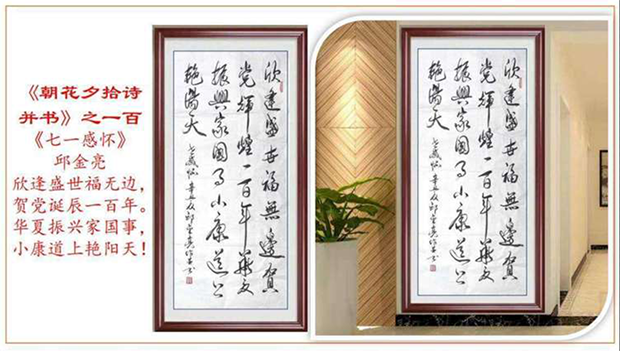 《朝花夕拾诗
并书》之一百
《七一感怀》
邱金亮
欣逢盛世福无边，
贺党诞辰一百年。
华夏振兴家国事，
小康道上艳阳天！
欣逢盛世福無邊賀
党輝煌一百年華夏
振興家國事小康道上
艳陽天
七一感怀 辛丑 邱金亮作并书
欣逢盛世福無邊賀
党輝煌一百年華夏
振興家國事小康道上
艳陽天
七一感怀 辛丑 邱金亮作并书